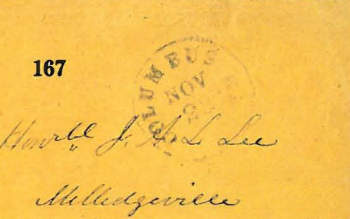 167
COLUMBUS
NOV
Honrbl J. A. L. Lee
Milledgeville